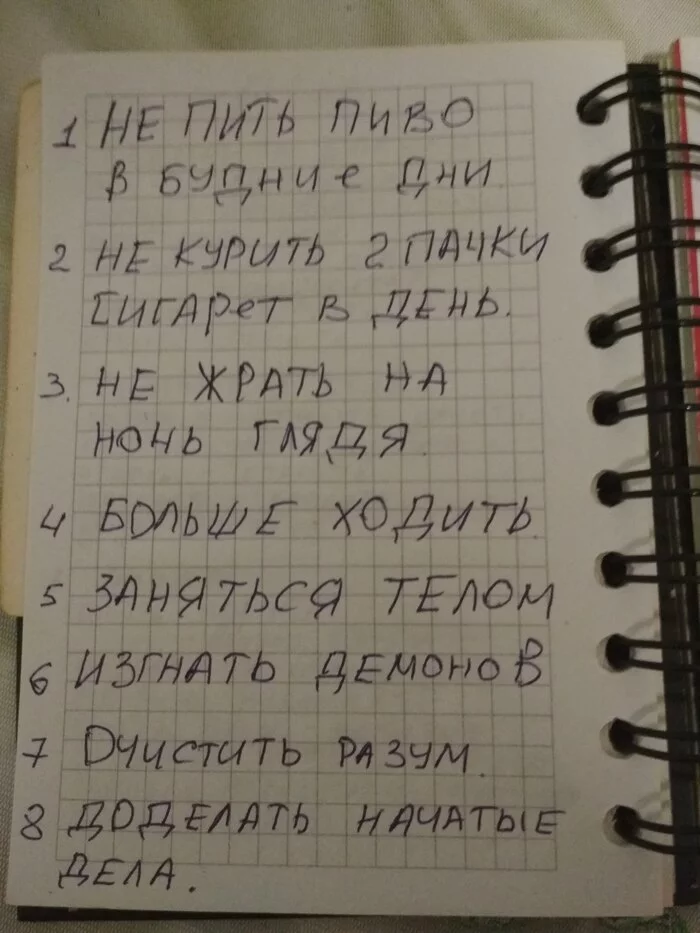 1 НЕ ПИТЬ ПИВО
В БУДНИе ДНИ
2 НЕ КУРИТЬ 2 ПАЧКИ
СИГАРеТ В ДЕНЬ.
3. НЕ ЖРАТЬ НА
НОЧЬ ГЛЯДЯ.
4 БОЛЬШЕ ХОДИТЬ.
5 ЗАНЯТЬСЯ ТЕЛОМ
6 ИЗГНАТЬ ДЕМОНОВ
7 ОЧИСТИТЬ РАЗУМ.
8 ДОДЕЛАТЬ НАЧАТЫЕ
ДЕЛА.